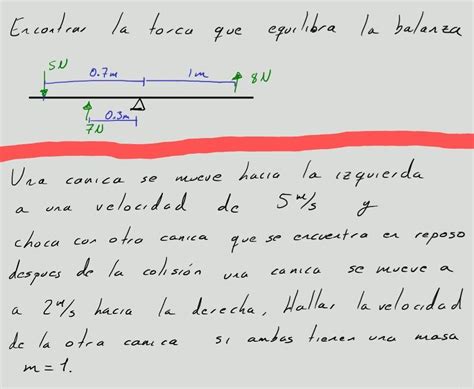 Encontrar la torca que equilibra la balanza
5N
0.7m
1m
8N
0.3m
7N
Una canica se mueve hacia la izquierda
a una velocidad de 5 m/s y
choca con otra canica que se encuentra en reposo
despues de la colisión una canica se mueve a
a 2 m/s hacia la derecha, Hallar la velocidad
de la otra canica si ambas tienen una masa
m = 1.